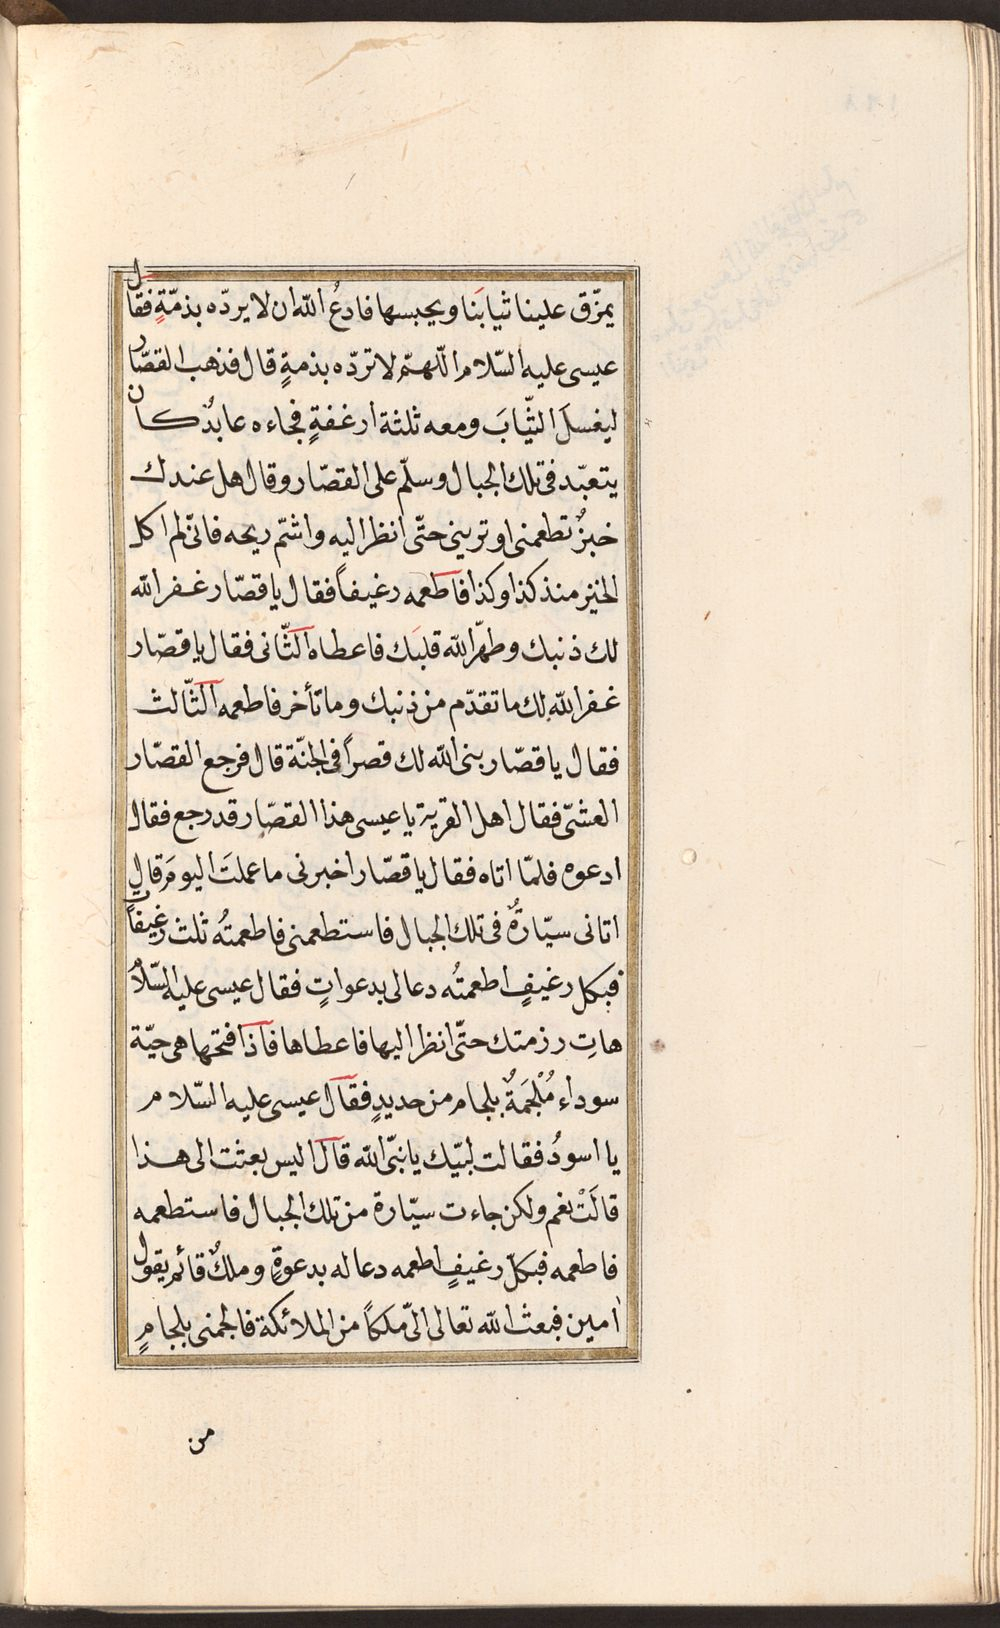 يمزّق علينا ثيابَنا ويحبسها فادعُ الله ان لا يردّه بذمّةٍ فقال
عيسى عليه السّلام اللّهمّ لا تردّه بذمةٍ قال فذهب القصّار
ليغسلَ الثّيابَ ومعه ثلثة ارغفةٍ فجاءه عابدٌ كان
يتعبّد فى تلك الجبال وسلّم على القصّار وقال هل عندك
خبزٌ تطعمنى او ترينى حتّى انظر اليه واشتمّ ريحه فانّى لم اكل
الخبز منذ كذا وكذا فاطعمه رغيفاً فقال يا قصّار غفر الله
لك ذنبك وطهّر الله قلبَك فاعطاه الثّانى فقال يا قصّار
غفر الله لك ما تقدّم من ذنبك وما تأخر فاطعمه الثّالث
فقال يا قصّار بنى الله لك قصراً فى الجنّة قال فرجع القصّار
العشىّ فقال اهل القرية يا عيسى هذا القصّار قد رجع فقال
ادعوه فلمّا اتاه فقال يا قصّار اخبرنى ما عملتَ اليومَ قال
اتانى سيّارةٌ فى تلك الجبال فاستطعمنى فاطعمتُه ثلث رغيفاتٍ
فبكل رغيفٍ اطعمتُه دعا لى بدعواتٍ فقال عيسى عليه السّلامُ
هاتِ رزمتك حتّى انظر اليها فاعطاها فاذا فتحها هى حيّة
سوداء مُلْجَمةٌ بلجام من حديدٍ فقال عيسى عليه السّلام
يا اسودُ فقالت لبّيك يا نبىّ الله قال اليس بعثت الى هذا
قالَتْ نعم ولكن جاءت سيّارة من تلك الجبال فاستطعمه
فاطعمه فبكلّ رغيفٍ اطعمه دعا له بدعوةٍ وملكٌ قائم يقول
امين فبعث الله تعالى الىّ ملكاً من الملائكة فالجمنى بلجامٍ
من